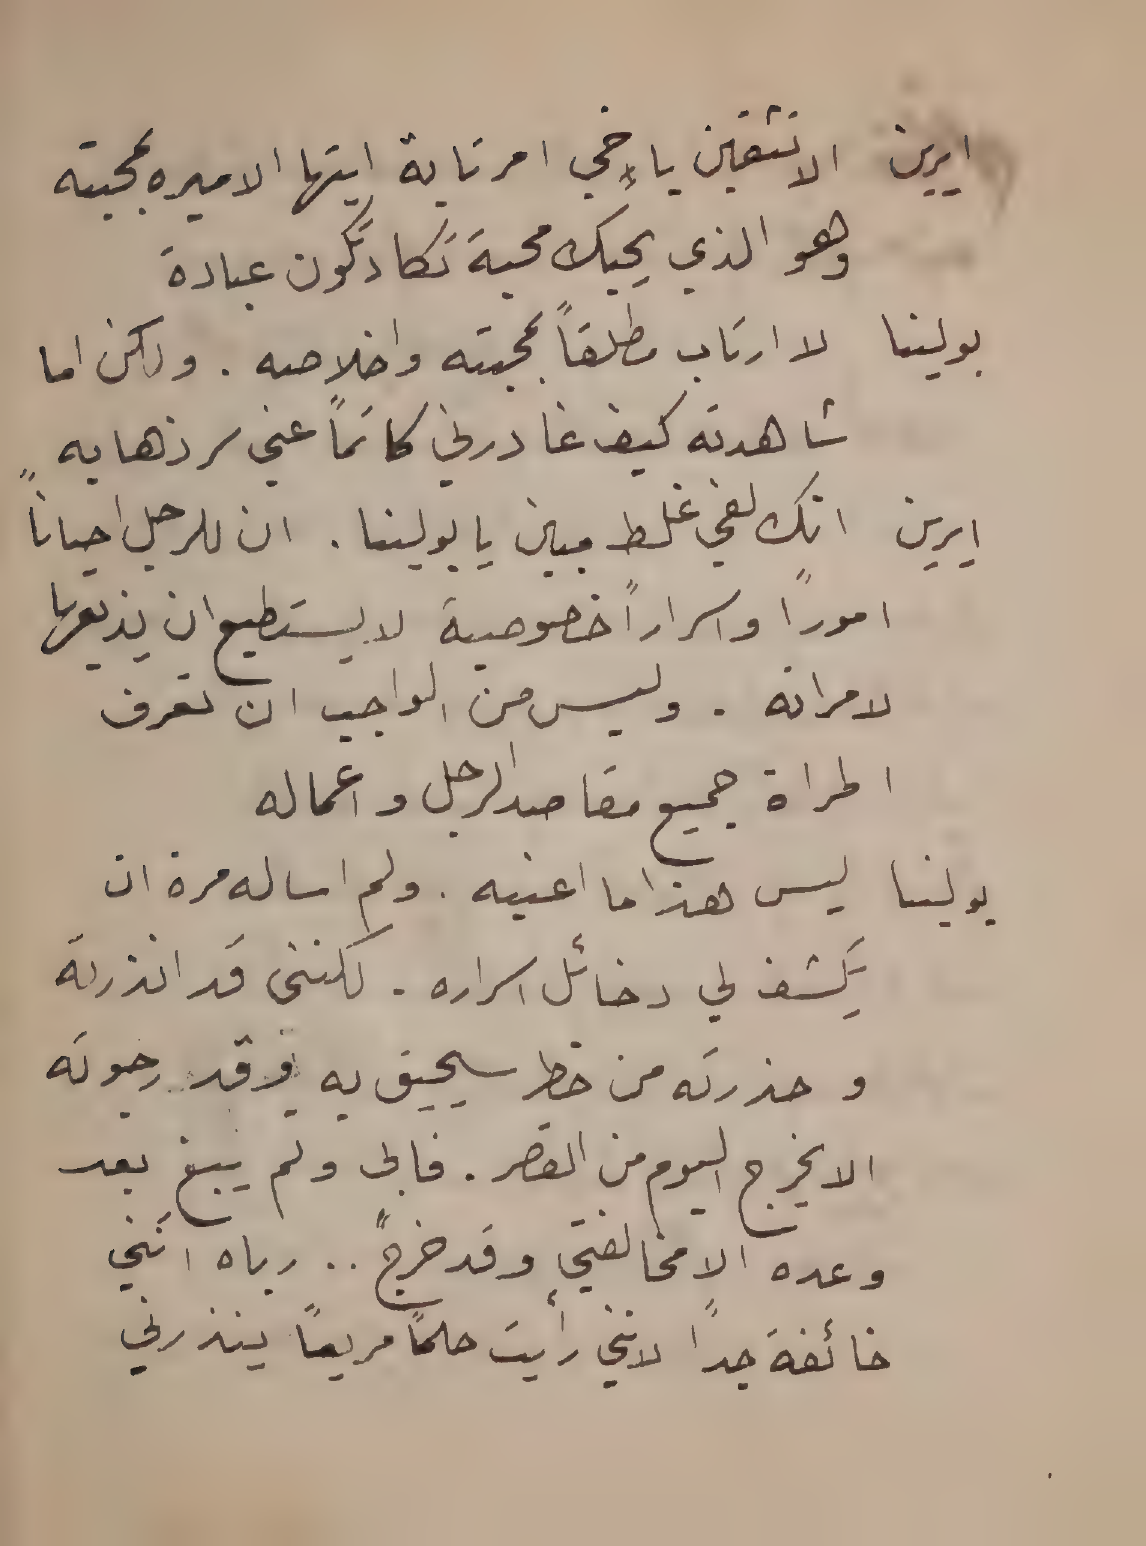 ايرين الا تثقين يا أخي ام رتابة ايتها الاميره بمحبته
وهو الذي يحبك محبة تكاد تكون عبادة
بولينا لا ارتاب مطلقاً بمحبته واخلاصه . ولكن اما
شاهدته كيف غادرني كاتماً عني سر ذهابه
ايرين انك لفي غلط مبين يا بولينا . ان للرجل احياناً
اموراً واسراراً خصوصية لا يستطيع ان يذيعها
لامراته . وليس من الواجب ان تعرف
المراة جميع مقاصد الرجل واعماله
بولينا ليس هذا ما اعنيه . ولم اساله مرة ان
يكشف لي دخائل اسراره . لكنني قد انذرته
وحذرته من خطر سيحيق به وقد رجوته
الا يخرج اليوم من القصر . فابى ولم يبغ بعد
وعده الا مخالفتي وقد خرج .. رباه انني
خائفة جداً لانني رأيت حلماً مريعاً ينذرني